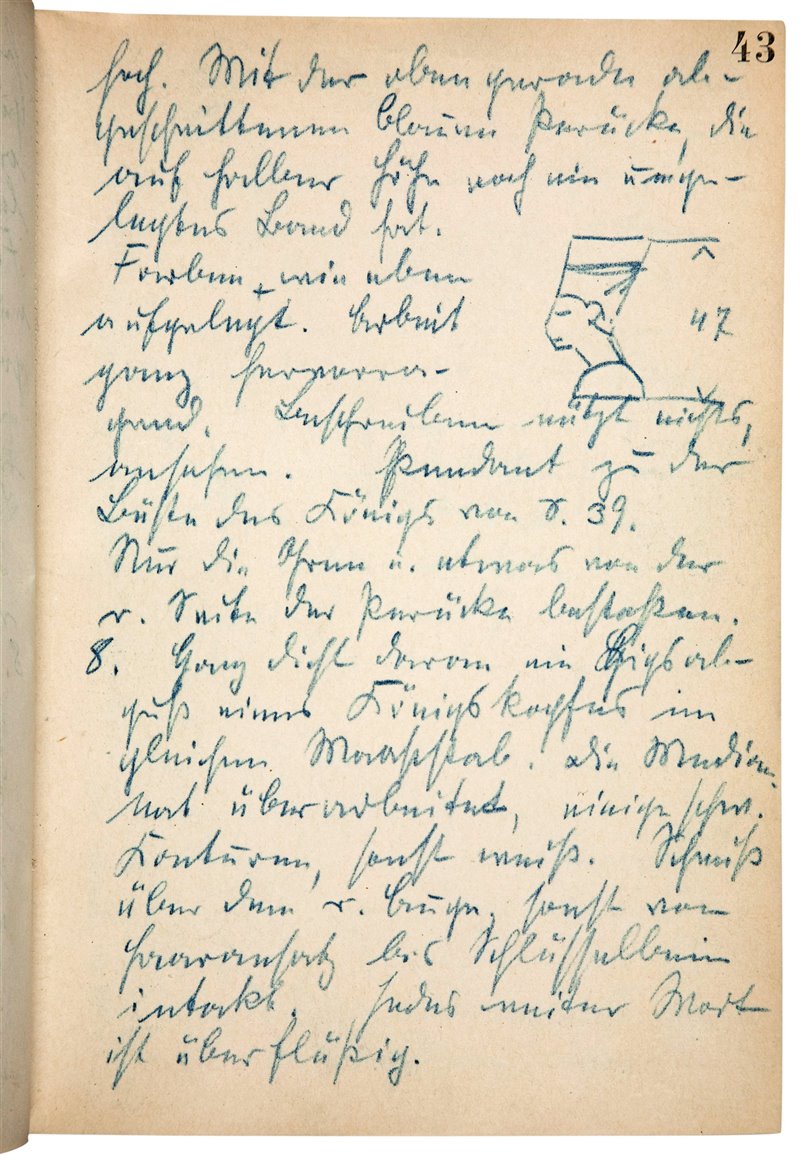 43
hoch. Mit der oben gerade ab-
geschnittenen blauen Perücke, die
auf halber Höhe noch ein umge-
legtes Band hat.
Farben wie eben
aufgelegt. Arbeit
47
ganz hervorra-
gend. Beschreiben nützt nichts,
ansehen. Pendant zu der
Büste des Königs von S. 39.
Nur die Ohren u. etwas von der
r. Seite der Perücke bestoßen.
8. Ganz dicht daran ein Gipsab-
guß eines Königskopfes im
gleichen Maaßstab. Die Median
Nat überarbeitet, einige schw.
Konturen, sonst weiß. Schmiß
über dem r. Auge, sonst vom
Haaransatz bis Schlüsselbein
intakt. Jedes weiter Wort
ist überflüßig.